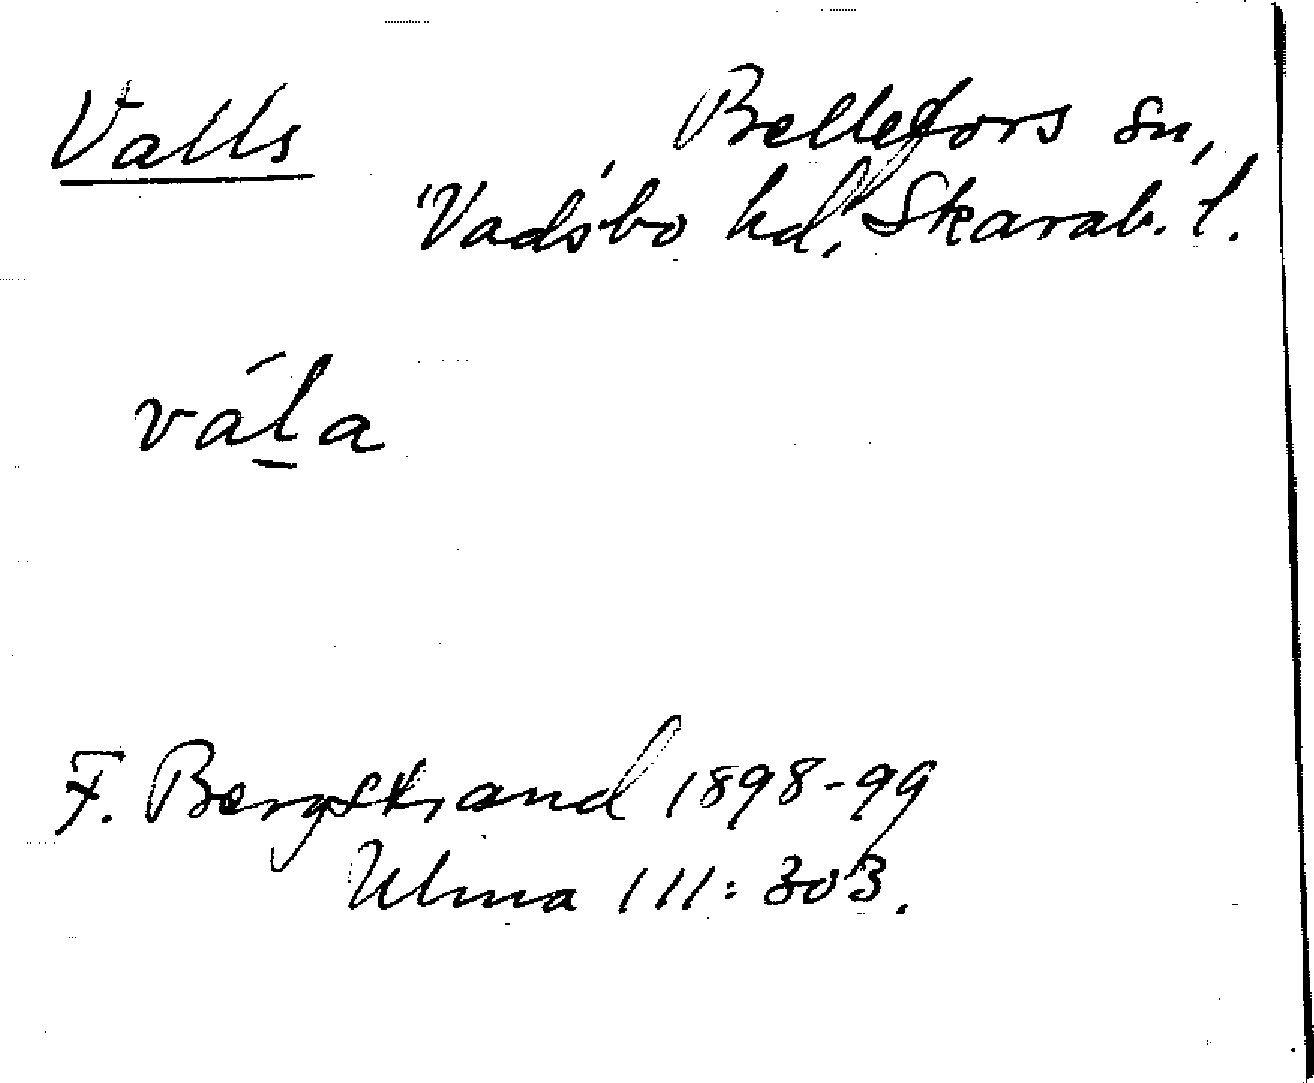 Valls
Bellefors sn,
Vadsbo hd, Skarab. l.
vál̠a
F. Bergstrand 1898-99
Ulma 111:303.